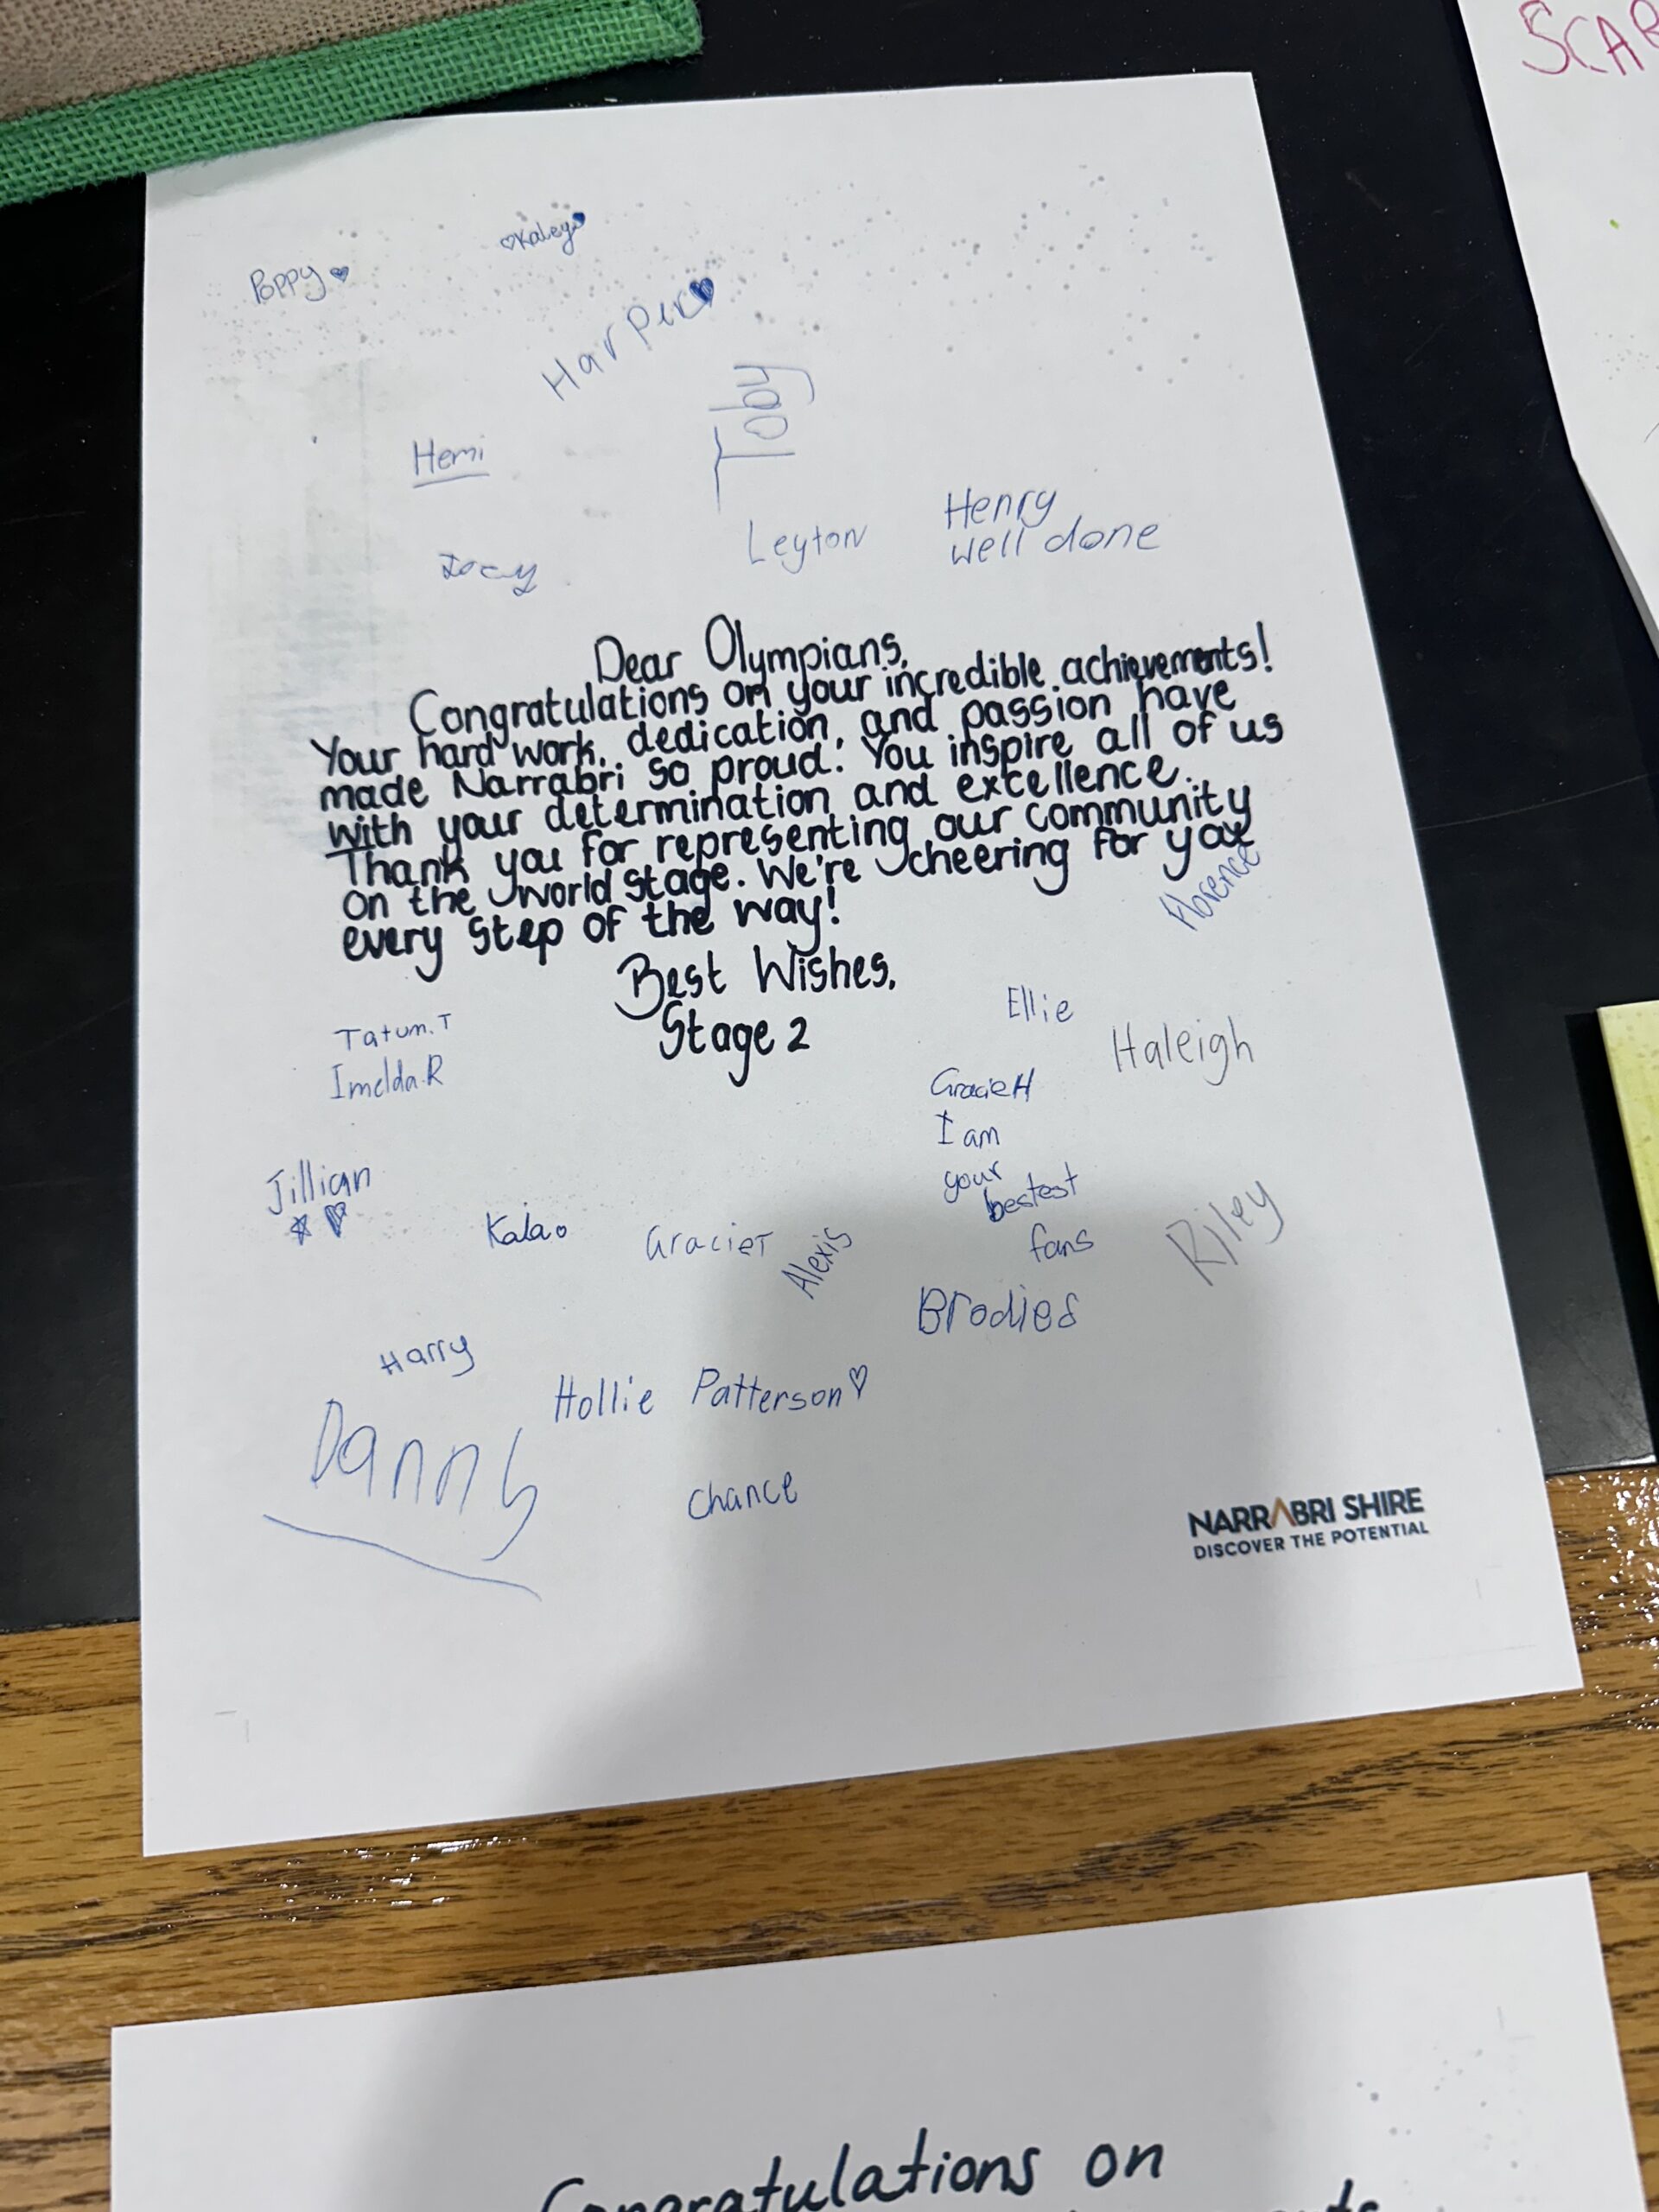 SCAR
Kaley
Poppy
Harper
Toby
Hemi
Henry
well done
Leyton
Dear Olympians,
Congratulations on your incredible achievements!
Your hard work, dedication, and passion have
made Narrabri so proud. You inspire all of us
with your determination and excellence.
Thank you for representing our community
on the world stage. We're cheering for you
every step of the way!
Florence
Best Wishes,
Stage 2
Ellie
Tatum.T
Haleigh
Imelda.R
Gracie H
I am
your
bestest
fans
Jillian
Kala
Gracie T
Alexis
Riley
Brodie
Harry
Hollie Patterson
Danny
chance
NARRABRI SHIRE
DISCOVER THE POTENTIAL
Congratulations on